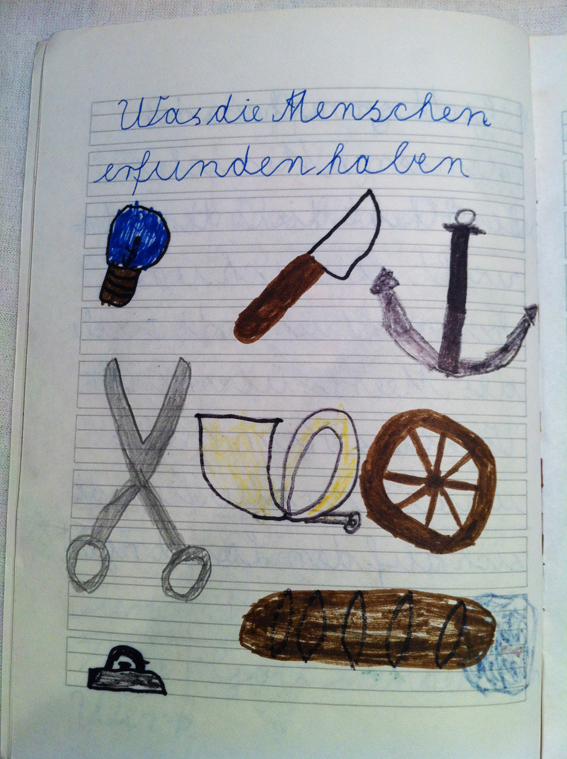 Was die Menschen
erfunden haben